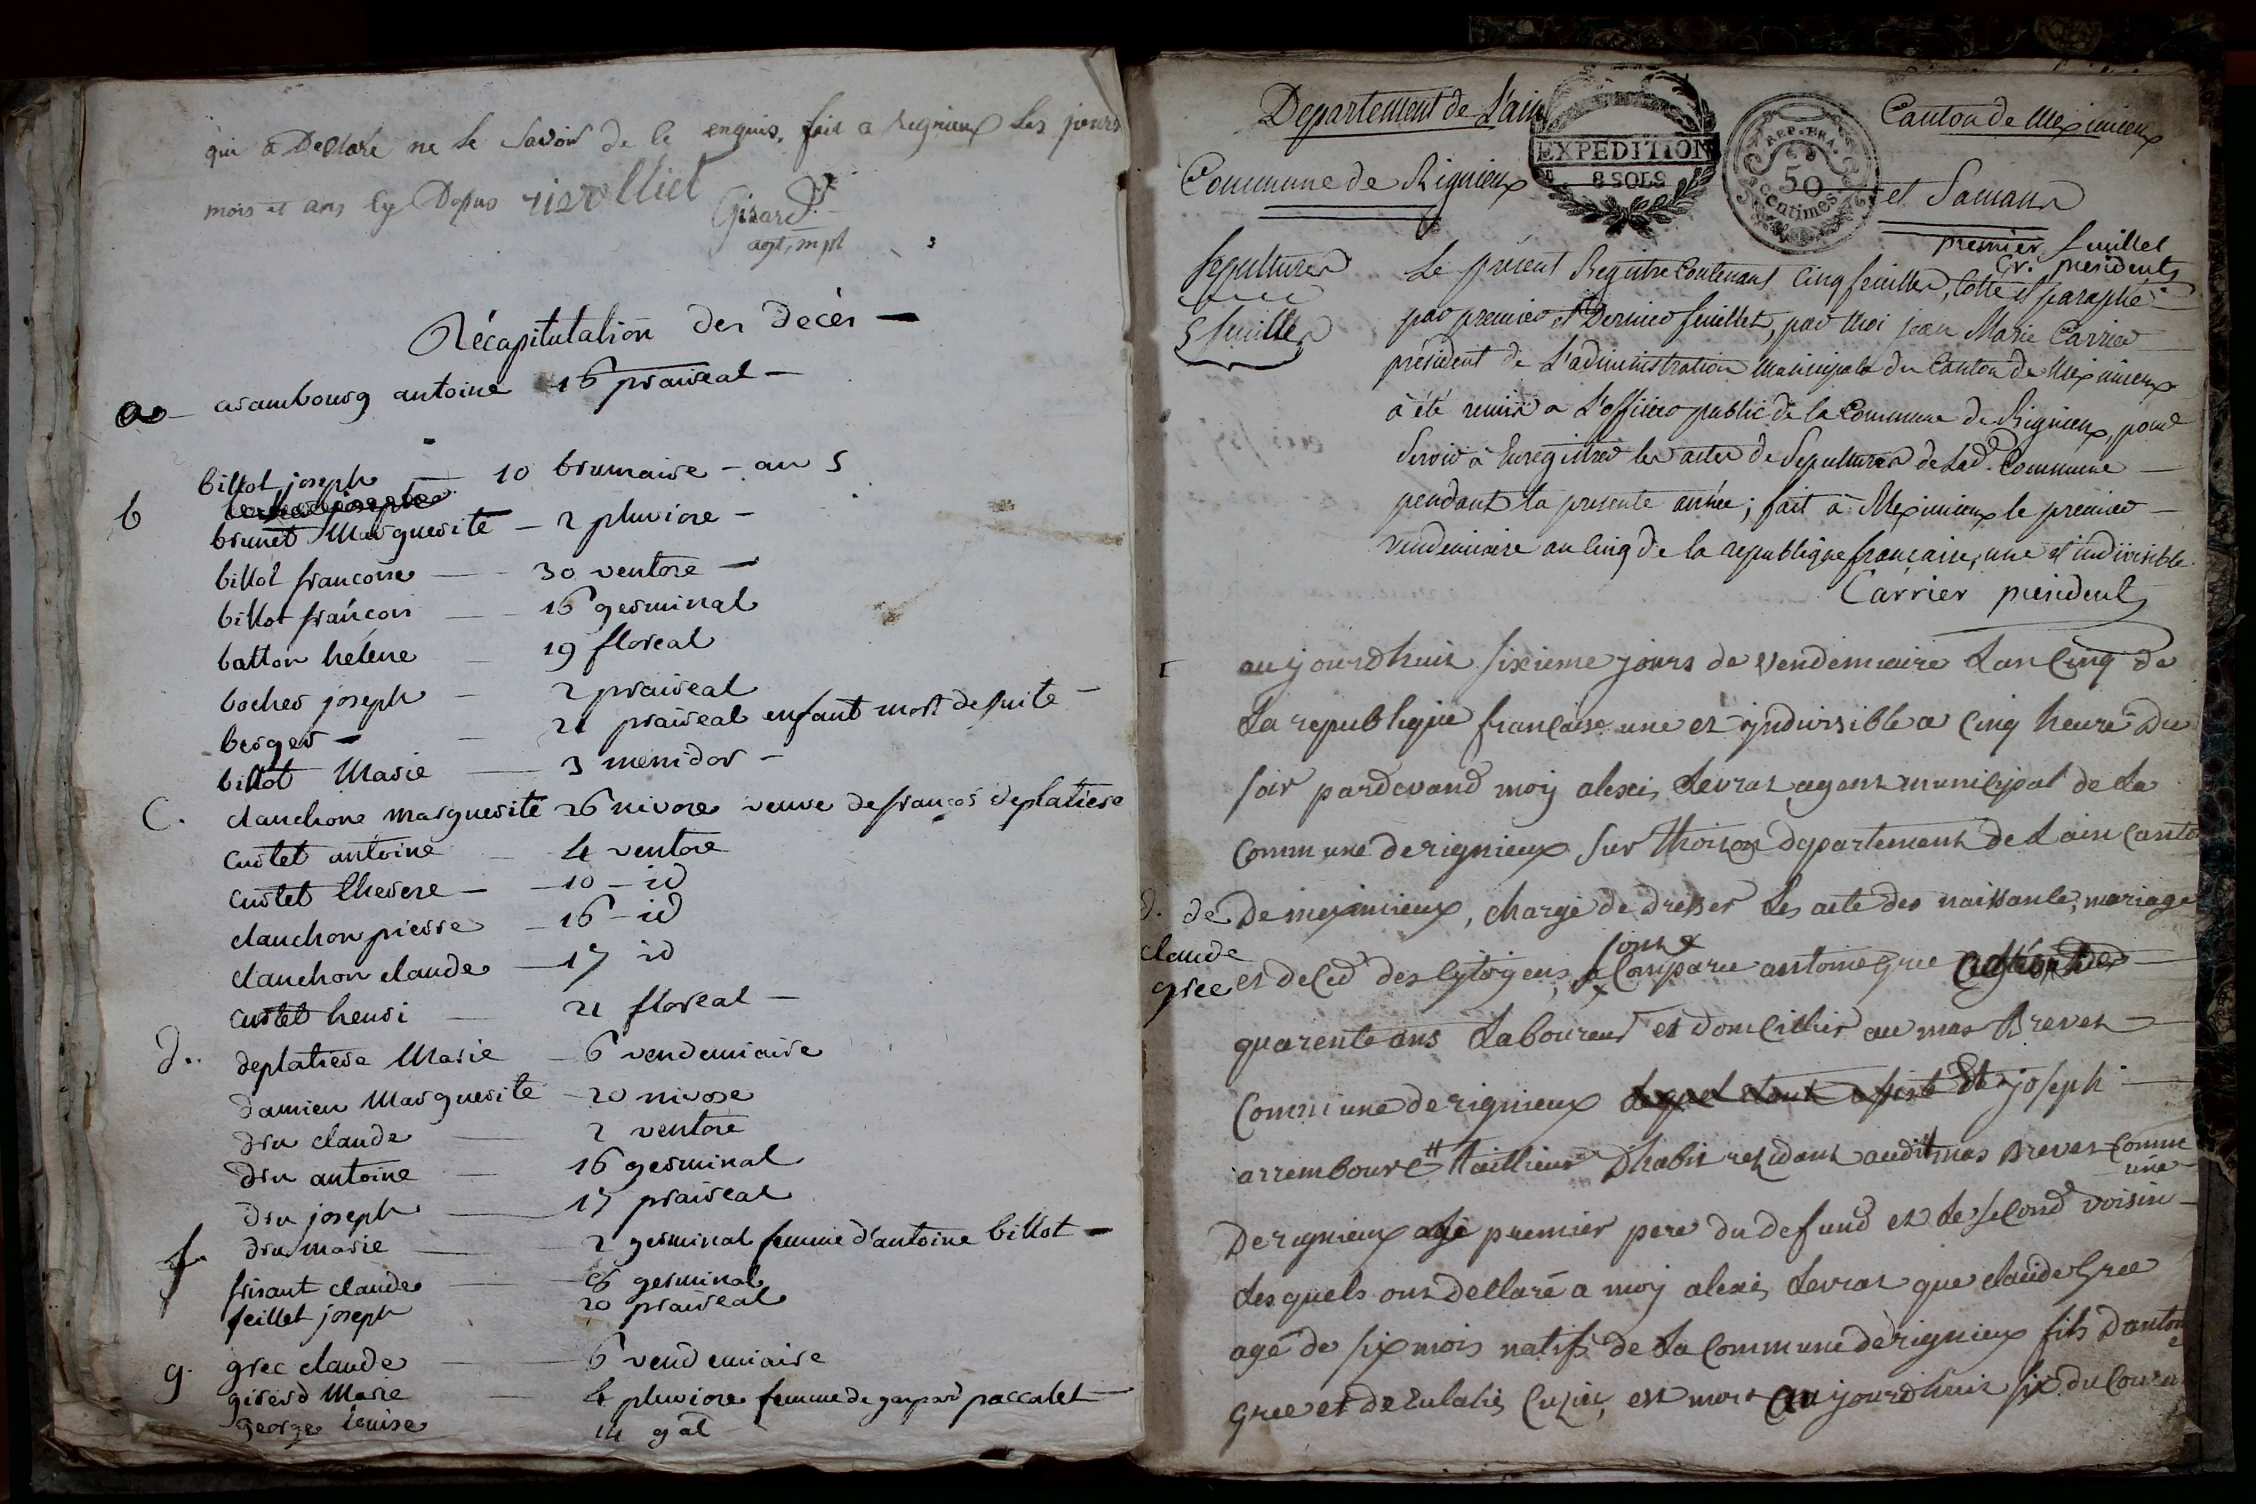 qui a Declaré ne le Savoir de le enquis. fait a Rignieux Les jours
mois et ans cy Depus rivolliet
Girard
agt, mpl
Récapitulation des décès —
a — arambourg antoine 16 prairéal —
billot joseph — 10 brumaire — an 5
b brunet Marguerite — 2 pluviose —
billot francoise — 30 ventose —
billot françois — 16 germinal
batton héléne — 19 floreal
bocher joseph — 2 prairéal
berger — 21 prairéal enfant mort de suite —
billot Marie — 3 messidor —
C. clauchone marguerite 26 nivose veuve de françois deplatiere
curtet antoine — 4 ventose
curtet therese — 10 — id
clauchon pierre — 16 — id
clauchon claude — 17 id
curtet henri — 21 floreal —
d. deplatiere Marie — 6 vendemiaire
damien Marguerite — 20 nivose
dru claude — 2 ventose
dru antoine — 16 germinal
dru joseph — 17 prairéal
dru marie — 2 germinal femme d'antoine billot —
f frisant claude — 8 germinal
feillet joseph 20 prairéal
g. grec claude — 6 vendemiaire
girerd Marie — 4 pluviose femme de gaspard paccalet —
george louise 14 gal
Departement de L'ain
EXPEDITION
8 SOLS
REP. FRA.
50
centimes
Canton de Meximieux
Commune de Rignieux
et Samans
premier feuillet
Cr. president
Sepultures
5 feuilles
Le présent Registre Contenant Cinq feuilles, Cotté et paraphé
par premier et Dernier feuillet, par Moi jean Marie Carrier
président de L'administration Municipale du Canton de Meximieux
à été remis a L'officier public de la Commune de Rignieux, pour
Servir à Enregistrer les actes de Sepultures de Lad. Commune —
pendant la presente année; fait à Meximieux le premier —
vendemiaire an Cinq de la republique française, une et indivisible.
Carrier president
aujourdhuis sixieme jours de vendemiaire Lan Cinq de
La republique française une et yndivisible a Cinq heure Du
soir pardevand moy alexis Levrat agent municypal de La
Commune de rignieux sur Thoison departement de Lain Canton
d. de
claude
grec
De meximieux, chargé de dresser Les acte des naissance, mariage
sont
et deCed des Cytoyens, Comparu antoine grec
quarente ans Laboureur et domCillié au mas Brevet —
Commune de rignieux Et joseph —
arrembourc tailleur Dhabit residant audit mas Brevet Comm
une
De rignieux Le premier pere du defund et Le seCond voisin —
Lesquels ont declaré a moy alexis Levrat que claude Grec
agé de six mois natifs de La Commune de rignieux fils Danton
e
Grec et de Eulalie Cuzin, est mort aujourdhuis six du Couran